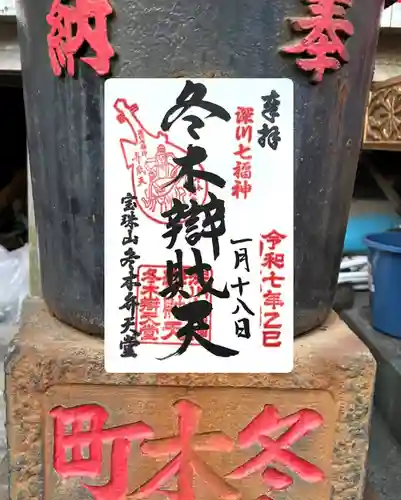 奉
納
来拝
深川七福神
冬木辯財天
令和七年乙巳
一月十八日
宝珠山冬木弁天堂
冬木弁天堂
冬木町